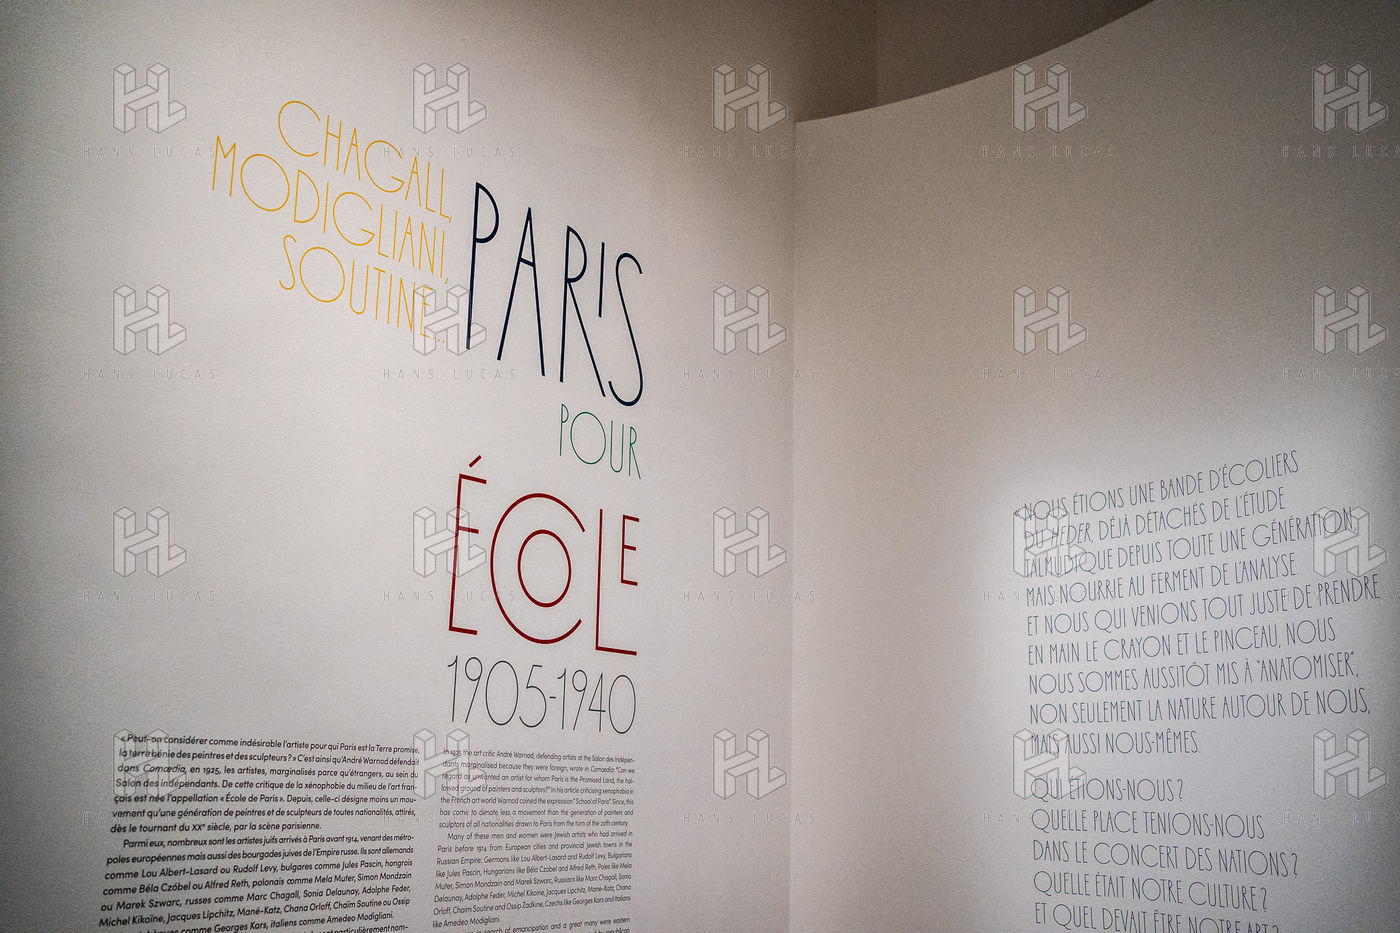 CHAGALL,
MODIGLIANI,
SOUTINE...
PARIS
POUR
ÉCOLE
1905-1940
« Peut-on considérer comme indésirable l'artiste pour qui Paris est la Terre promise,
la terre bénie des peintres et des sculpteurs ? » C'est ainsi qu'André Warnod défendait
dans Comœdia, en 1925, les artistes, marginalisés parce qu'étrangers, au sein du
Salon des indépendants. De cette critique de la xénophobie du milieu de l'art fran-
çais est née l'appellation « École de Paris ». Depuis, celle-ci désigne moins un mou-
vement qu'une génération de peintres et de sculpteurs de toutes nationalités, attirés,
dès le tournant du XXe siècle, par la scène parisienne.
Parmi eux, nombreux sont les artistes juifs arrivés à Paris avant 1914, venant des métro-
poles européennes mais aussi des bourgades juives de l'Empire russe. Ils sont allemands
comme Lou Albert-Lasard ou Rudolf Levy, bulgares comme Jules Pascin, hongrois
comme Béla Czóbel ou Alfred Reth, polonais comme Mela Muter, Simon Mondzain
ou Marek Szwarc, russes comme Marc Chagall, Sonia Delaunay, Adolphe Feder,
Michel Kikoïne, Jacques Lipchitz, Mané-Katz, Chana Orloff, Chaïm Soutine ou Ossip
comme Georges Kars, italiens comme Amedeo Modigliani.
In 1925, the art critic André Warnod, defending artists at the Salon des Indépen-
dants marginalised because they were foreign, wrote in Comœdia "Can we
regard as unwanted an artist for whom Paris is the Promised Land, the hal-
lowed ground of painters and sculptors?" In his article criticising xenophobia in
the French art world Warnod coined the expression "School of Paris". Since, this
has come to denote less a movement than the generation of painters and
sculptors of all nationalities drawn to Paris from the turn of the 20th century.
Many of these men and women were Jewish artists who had arrived in
Paris before 1914 from European cities and provincial Jewish towns in the
Russian Empire: Germans like Lou Albert-Lasard and Rudolf Levy, Bulgarians
like Jules Pascin, Hungarians like Béla Czóbel and Alfred Reth, Poles like Mela
Muter, Simon Mondzain and Marek Szwarc, Russians like Marc Chagall, Sonia
Delaunay, Adolphe Feder, Michel Kikoïne, Jacques Lipchitz, Mané-Katz, Chana
Orloff, Chaïm Soutine and Ossip Zadkine, Czechs like Georges Kars and Italians
like Amedeo Modigliani.
in search of emancipation and a great many were eastern
« NOUS ÉTIONS UNE BANDE D'ÉCOLIERS
DU HEDER, DÉJÀ DÉTACHÉS DE L'ÉTUDE
TALMUDIQUE DEPUIS TOUTE UNE GÉNÉRATION,
MAIS NOURRIE AU FERMENT DE L'ANALYSE.
ET NOUS QUI VENIONS TOUT JUSTE DE PRENDRE
EN MAIN LE CRAYON ET LE PINCEAU, NOUS
NOUS SOMMES AUSSITÔT MIS À "ANATOMISER",
NON SEULEMENT LA NATURE AUTOUR DE NOUS,
MAIS AUSSI NOUS-MÊMES.
QUI ÉTIONS-NOUS ?
QUELLE PLACE TENIONS-NOUS
DANS LE CONCERT DES NATIONS ?
QUELLE ÉTAIT NOTRE CULTURE ?
ET QUEL DEVAIT ÊTRE NOTRE ART ?
HANS LUCAS